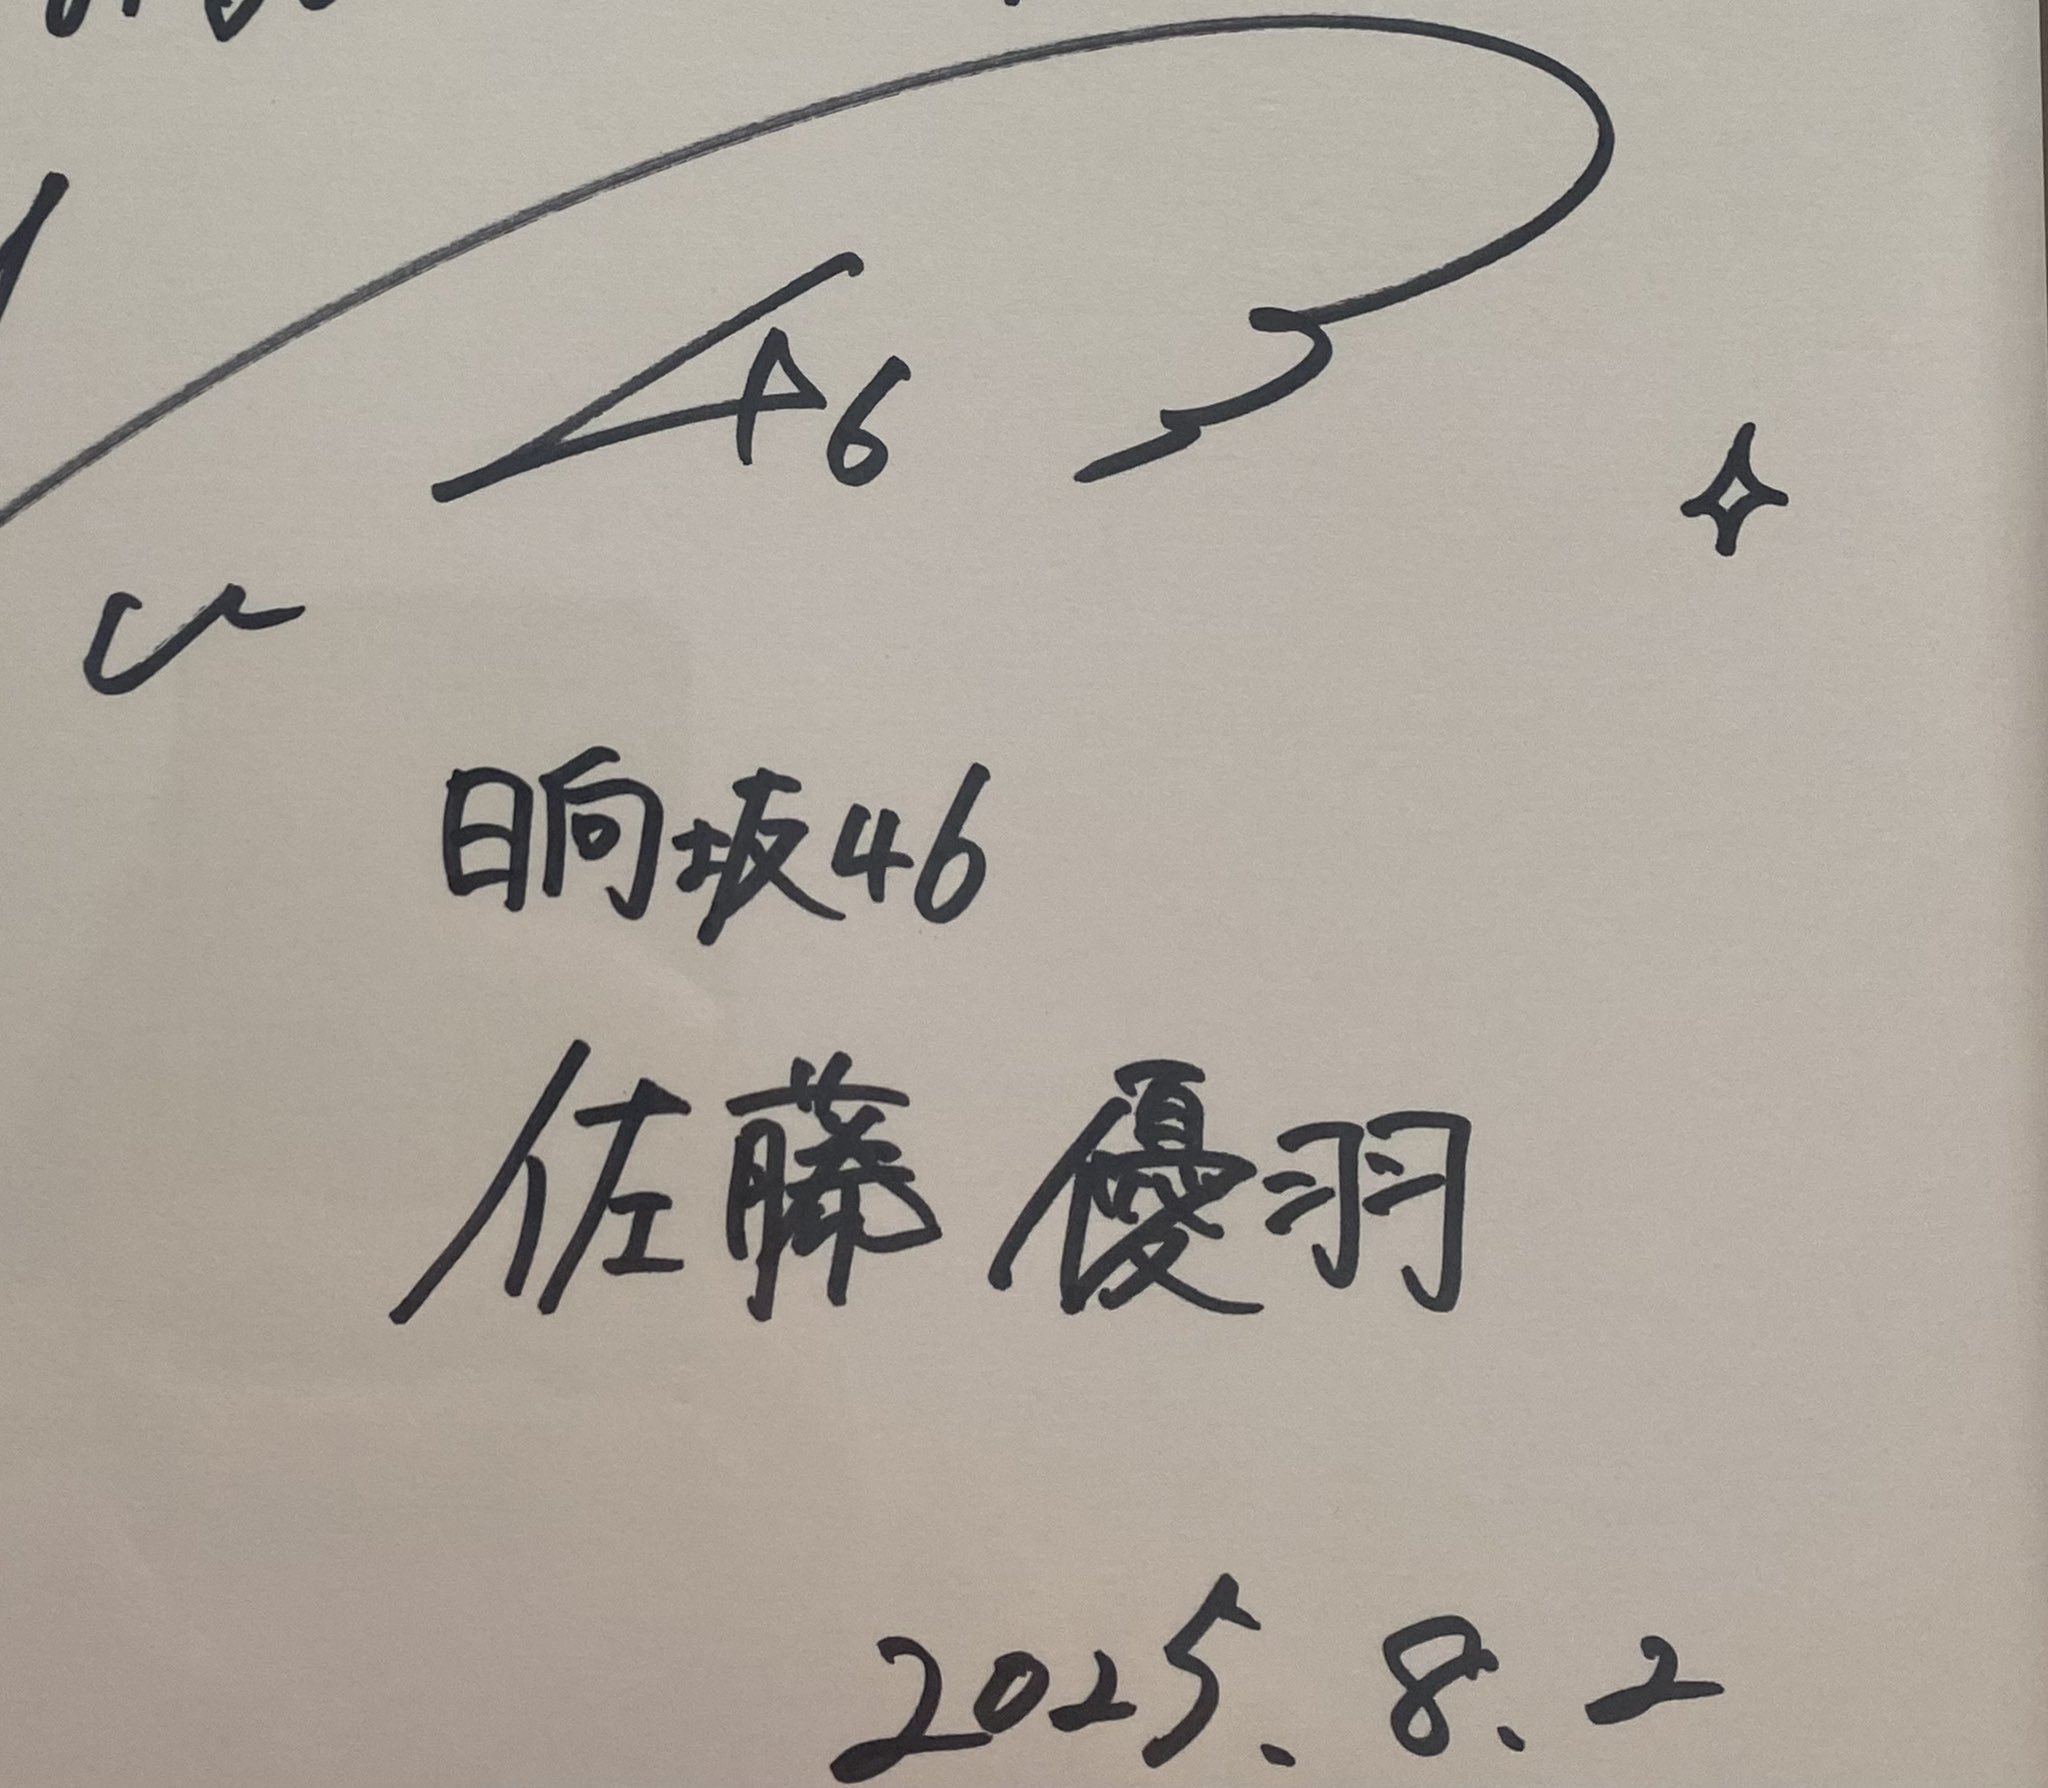 46
日向坂46
佐藤 優羽
2025.8.2